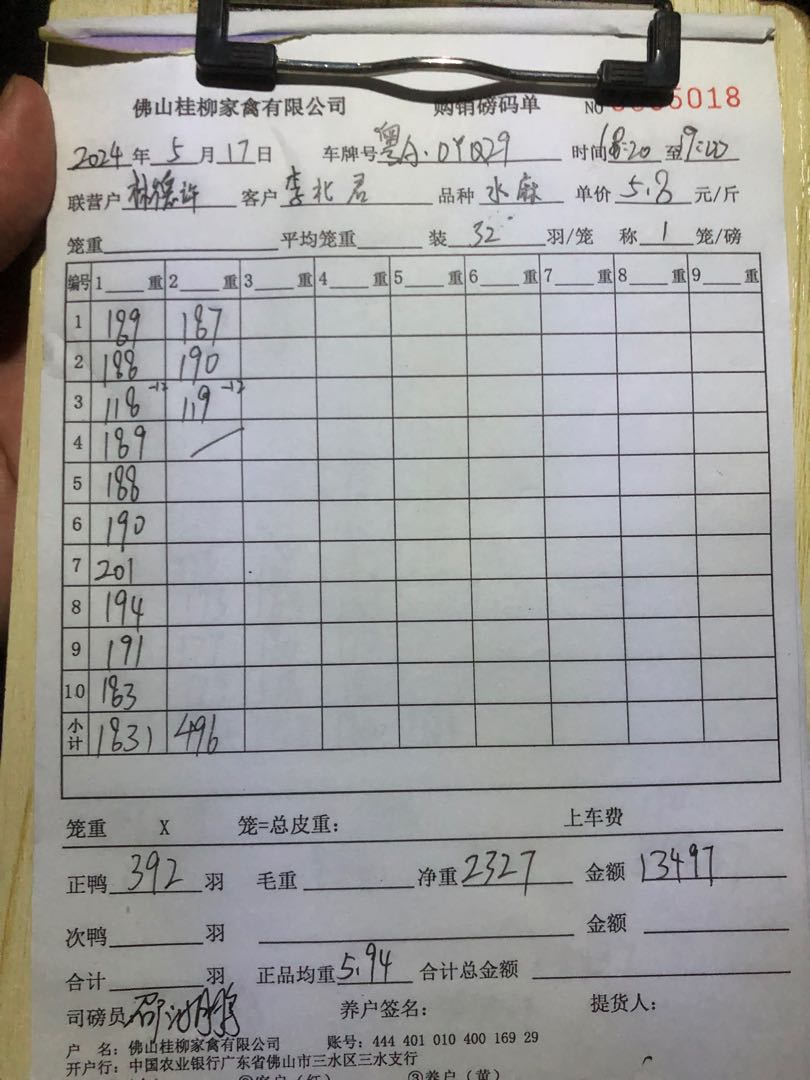 佛山桂柳家禽有限公司 购销磅码单 No 5018
2024年5月17日 车牌号粤A·DY029 时间18:20至19:00
联营户 客户李北君 品种水麻 单价5.8元/斤
笼重 平均笼重 装32羽/笼 称1笼/磅
编号 1 重 2 重 3 重 4 重 5 重 6 重 7 重 8 重 9 重
1 189 187
2 188 190
3 118 -12 119 -12
4 189 /
5 188
6 190
7 201
8 194
9 191
10 183
小计 1831 496
笼重 X 笼=总皮重: 上车费
正鸭392羽 毛重 净重2327 金额13497
次鸭 羽 金额
合计 羽 正品均重5.94 合计总金额
司磅员 养户签名: 提货人:
户 名: 佛山桂柳家禽有限公司 账号: 444 401 010 400 169 29
开户行: 中国农业银行广东省佛山市三水区三水支行
②客户(红) ③养户(黄)